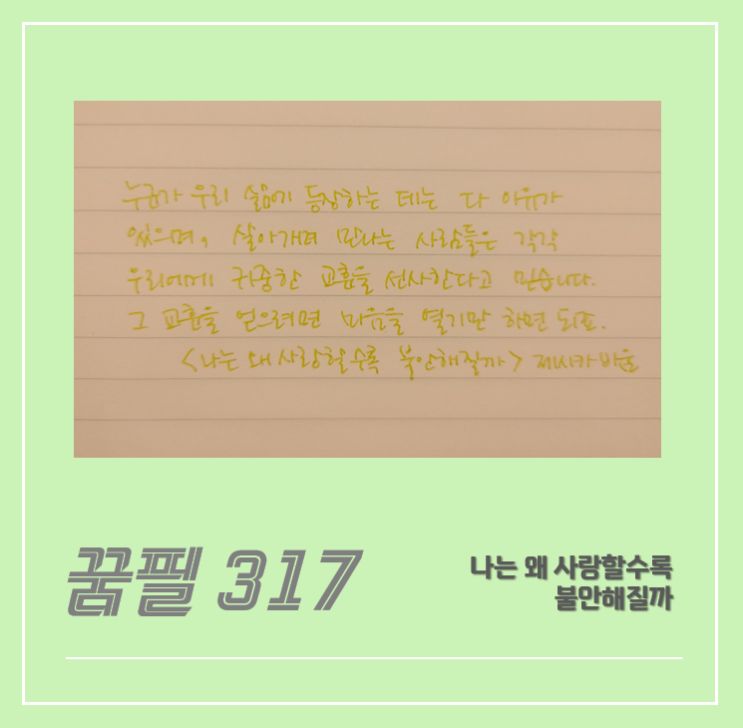 누군가 우리 삶에 등장하는 데는 다 이유가
있으며, 살아가며 만나는 사람들은 각각
우리에게 귀중한 교훈을 선사한다고 믿습니다.
그 교훈을 얻으려면 마음을 열기만 하면 되죠.
<나는 왜 사랑할수록 불안해질까> 제시카 바움
꿈필 317
나는 왜 사랑할수록
불안해질까